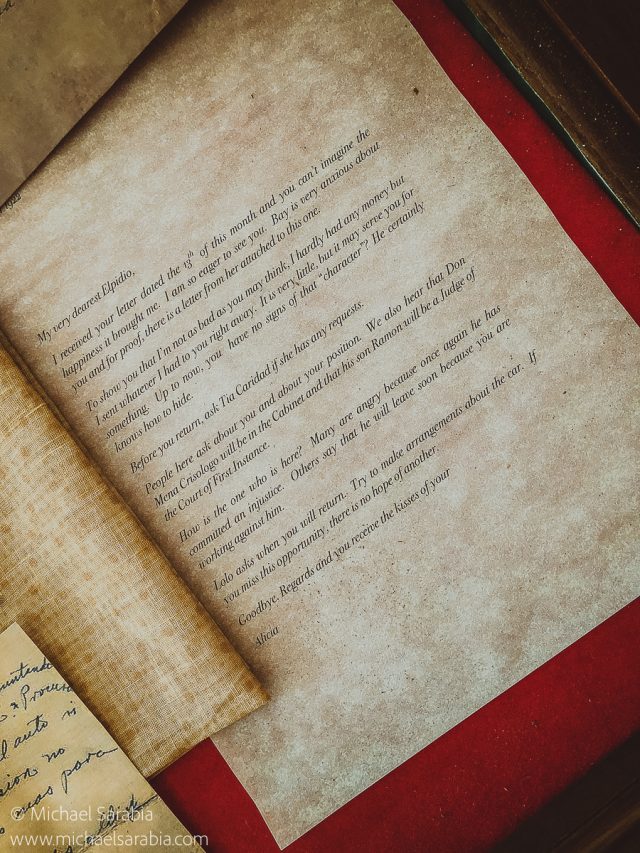 1922
My very dearest Elpidio,
I received your letter dated the 13th of this month and you can't imagine the
happiness it brought me. I am so eager to see you. Bay is very anxious about
you and for proof, there is a letter from her attached to this one.
To show you that I'm not as bad as you may think, I hardly had any money but
I sent whatever I had to you right away. It is very little, but it may serve you for
something. Up to now, you have no signs of that "character"? He certainly
knows how to hide.
Before you return, ask Tia Caridad if she has any requests.
People here ask about you and about your position. We also hear that Don
Mena Crisologo will be in the Cabinet and that his son Ramon will be a Judge of
the Court of First Instance.
How is the one who is here? Many are angry because once again he has
committed an injustice. Others say that he will leave soon because you are
working against him.
Lolo asks when you will return. Try to make arrangements about the car. If
you miss this opportunity, there is no hope of another.
Goodbye. Regards and you receive the kisses of your
Alicia
Procura
l auto si
sion no
mas para
© Michael Sarabia
www.michaelsarabia.com